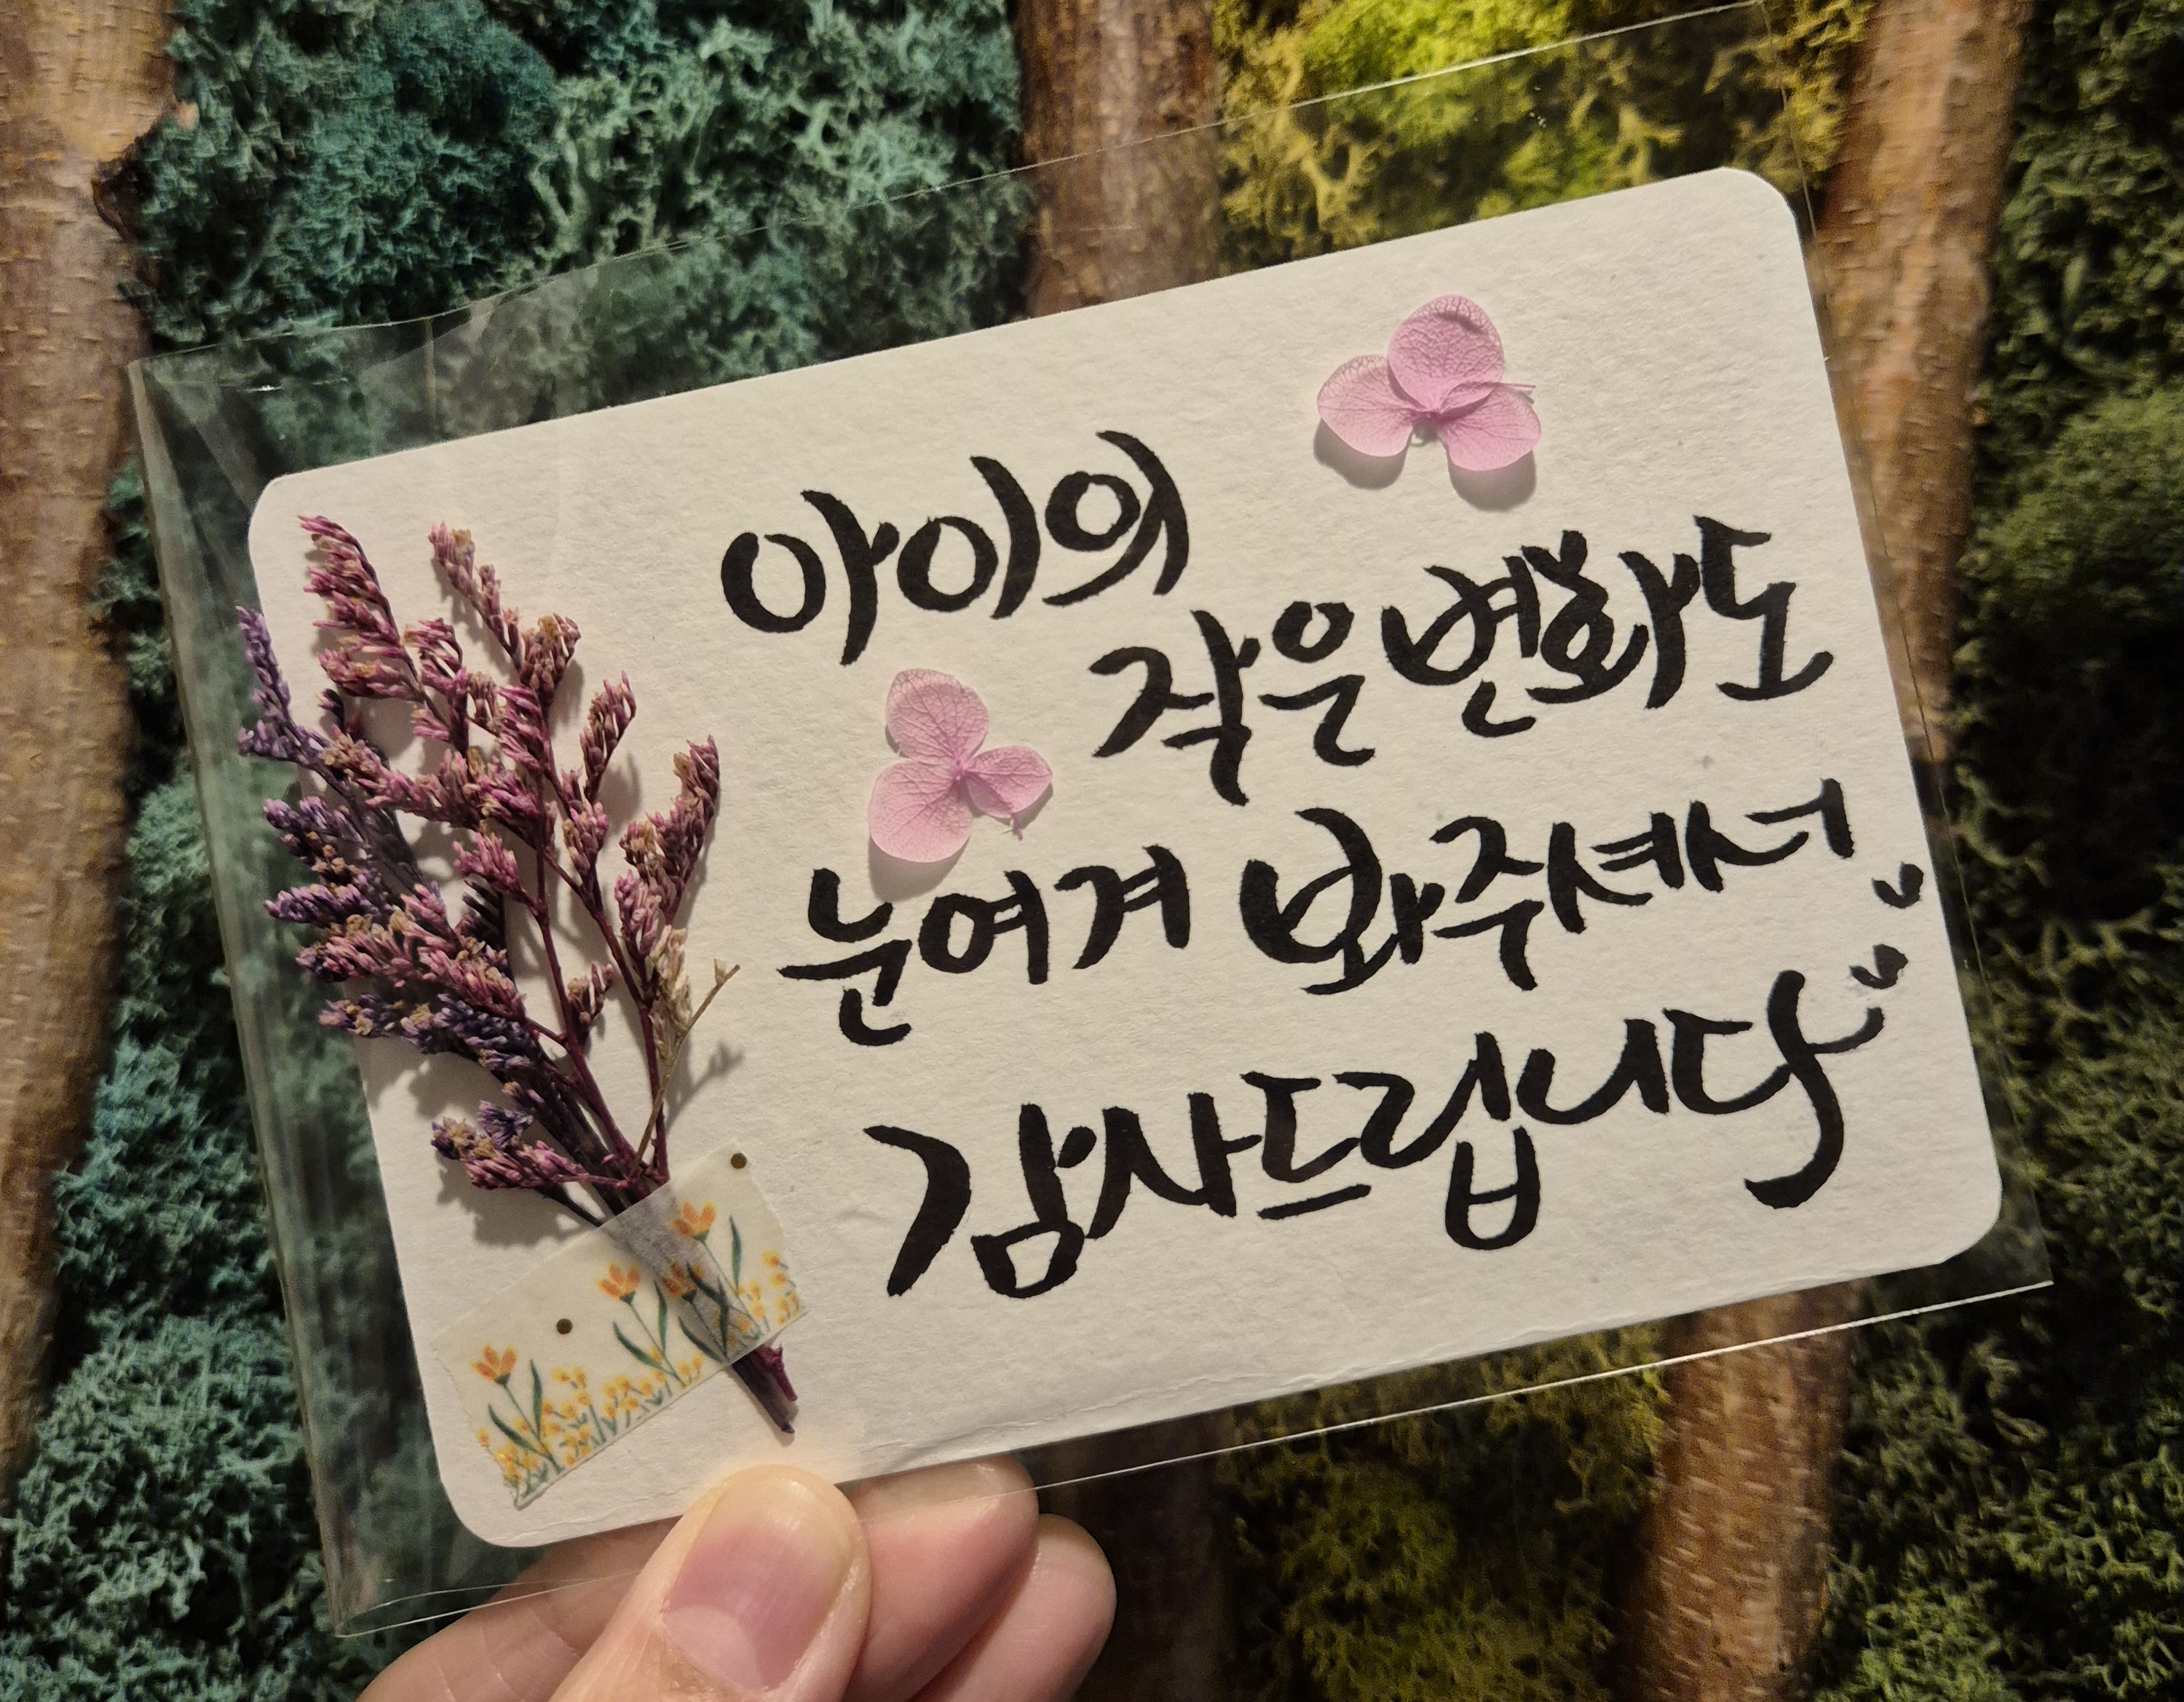 아이의
작은 변화도
눈여겨 봐주셔서
감사드립니다